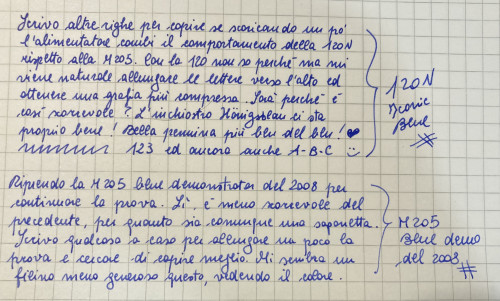 Scrivo altre righe per capire se scaricando un pò
l'alimentatore cambi il comportamento della 120N
rispetto alla M205. Con la 120 non so perché ma mi
viene naturale allungare le lettere verso l'alto ed
ottenere una grafia più compressa. Sarà perché è
così scorrevole? L'inchiostro Königsblau ci sta
proprio bene! Bella pennina più blu del blu!
123 ed ancora anche A-B-C
120N
Iconic
Blue
Riprendo la M205 blue demonstrator del 2008 per
continuare la prova. Lì è meno scorrevole del
precedente, per quanto sia comunque una saponetta.
Scrivo qualcosa a caso per allungare un poco la
prova e cercare di capire meglio. Mi sembra un
filino meno generoso questo, vedendo il colore.
M205
Blue demo
del 2008